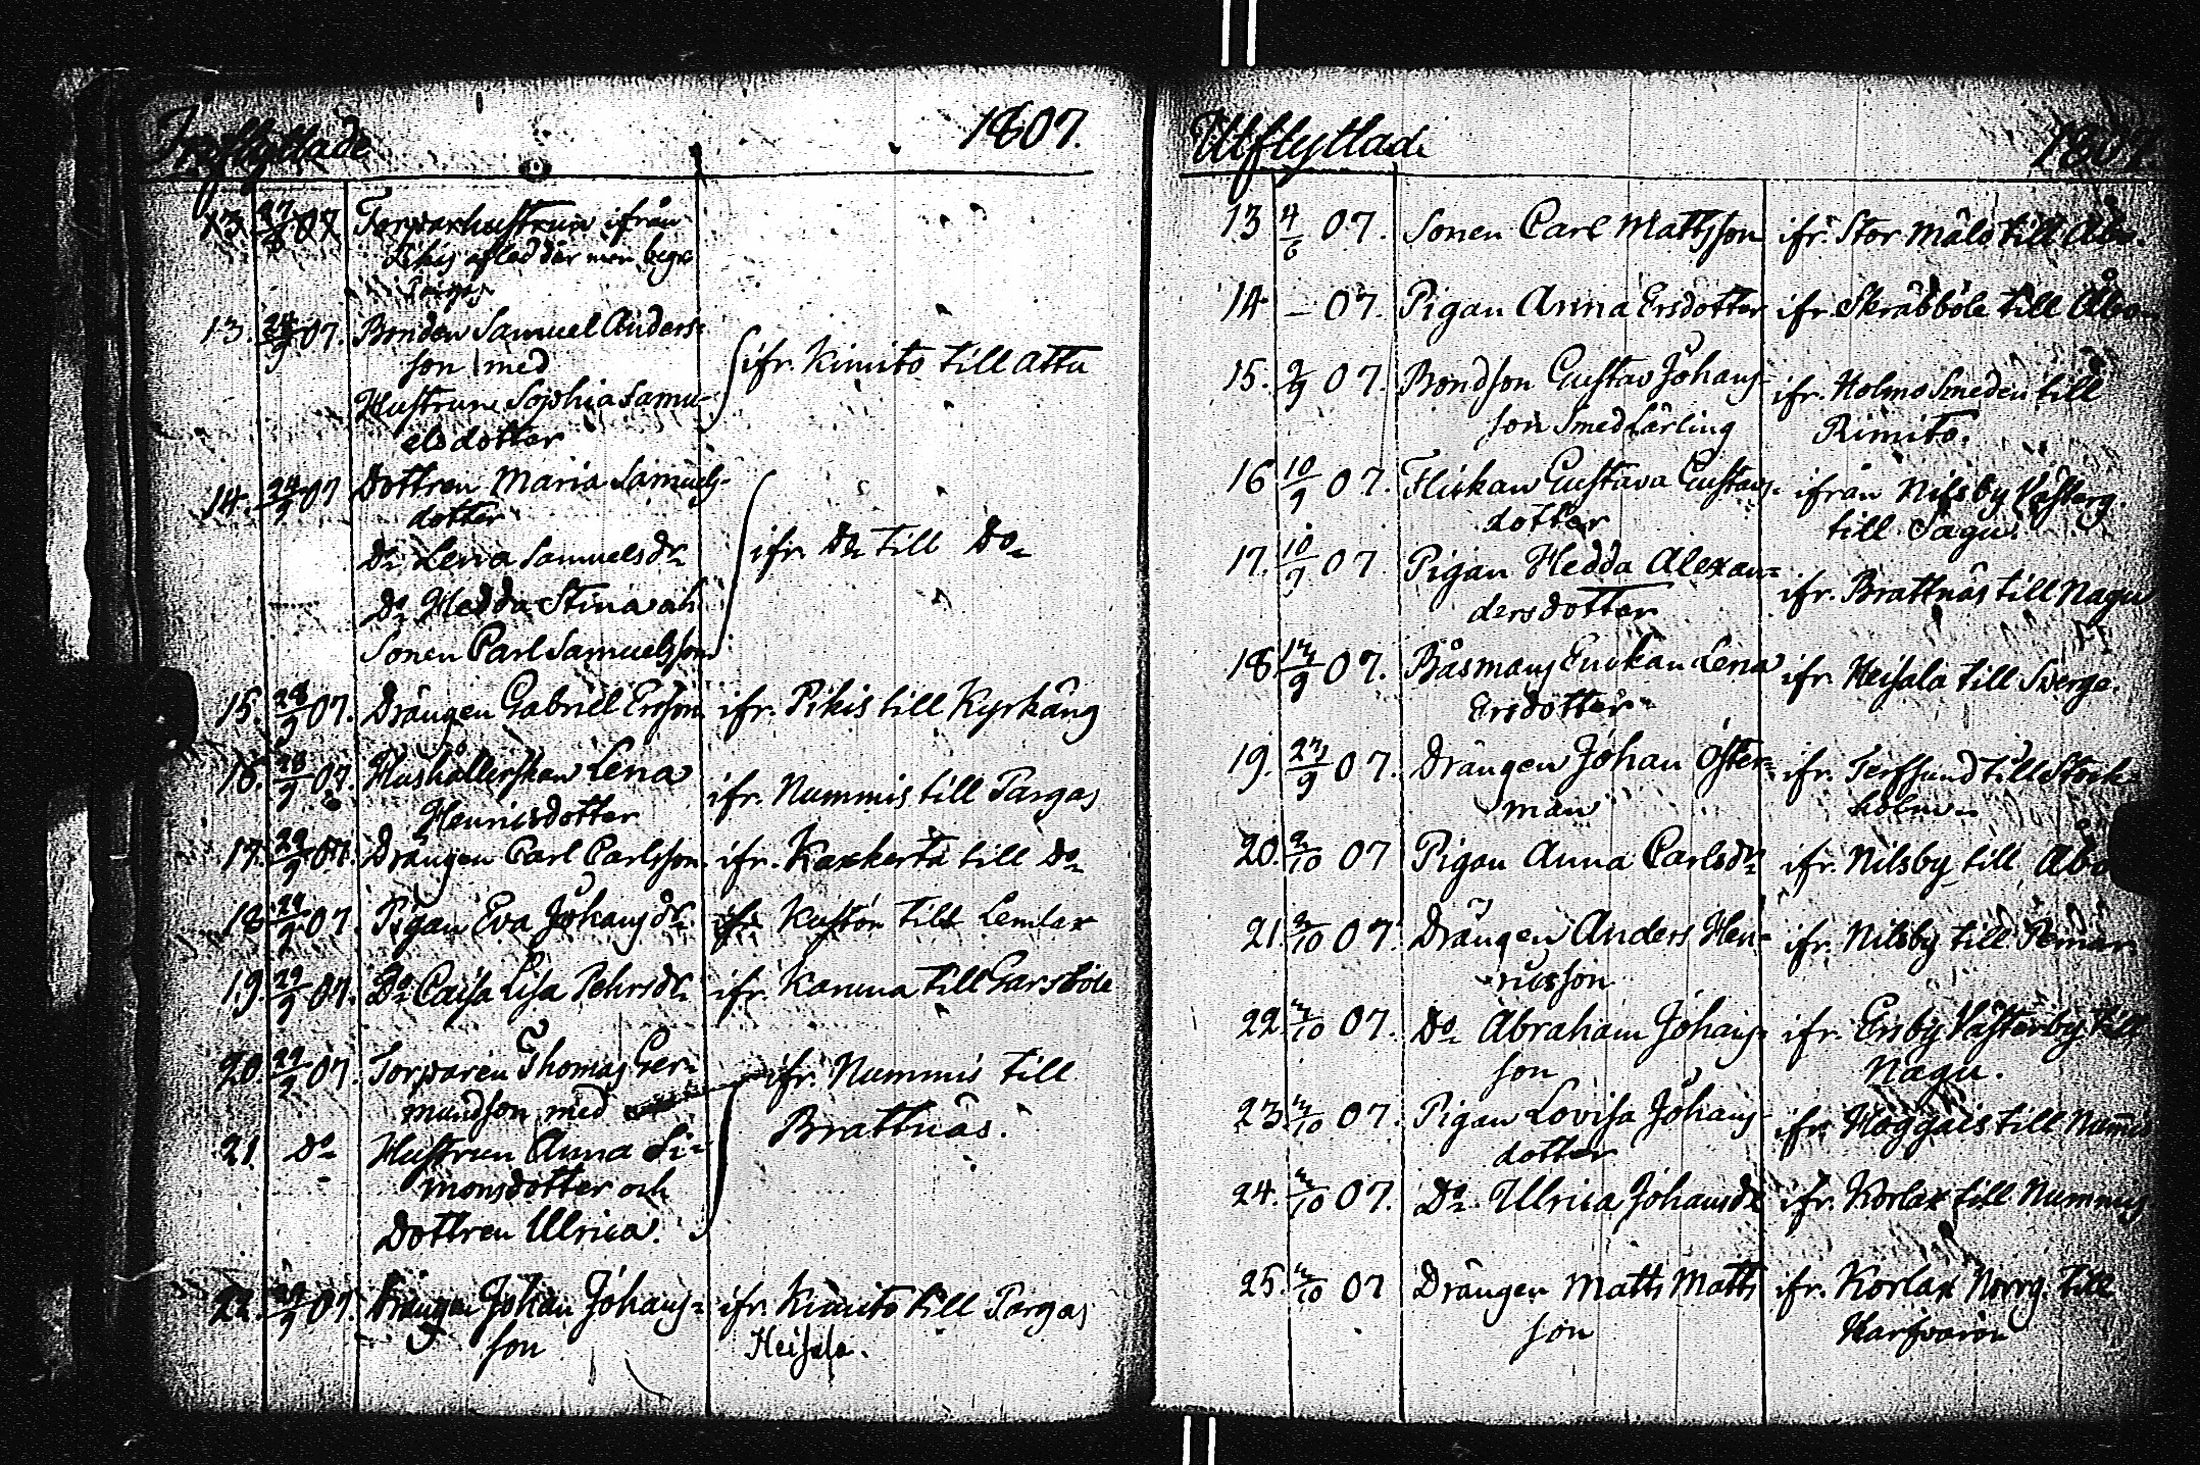 Inflyttade 1807.
13 27/8 07 Torparhustrun ifrån
Likis afled där men begr.
13. 24/9 07. Bonden Samuel Anders=
son med
Hustrun Sophia Samu-
elsdotter
ifr. Kimito till Attu
14. 24/9 07 Dottren Maria Samuels-
dotter
Do Lena Samuelsdr
Do Hedda Stina och
Sonen Carl Samuelsson
ifr. Do till Do
15. 28/9 07. Drängen Gabriel Ersson ifr. Pikis till Kyrkäng
16. 28/9 07. Hushållerskan Lena
Henricsdotter
ifr. Nummis till Pargas
17. 29/9 07. Drängen Carl Carlsson ifr. Kaxkerta till Do
18 29/9 07. Pigan Eva Johansdr. ifr Kustö till Lemlax
19. 29/9 07. Do Caisa Lisa Pehrsdr. ifr. Karuna till Garsböle
20. 29/9 07. Torparen Thomas Ger=
mundson med
ifr. Nummis till
Brattnäs.
21. do Hustrun Anna Si=
monsdotter och
Dottren Ulrica.
22. 29/9 07. Drängen Johan Johans=
son
ifr. Kimito till Pargas
Heisala.
Utflyttade 1807.
13 4/6 07. Sonen Carl Mattsson ifr. Stor Mälö till Åbo.
14 — 07. Pigan Anna Ersdotter ifr. Skräbböle till Åbo.
15. 2/9 07. Bondson Gustav Johans-
son Smedlärling
ifr. Holmo Smeden till
Rimito.
16 10/9 07. Flickan Gustava Gustavs-
dotter
ifrån Nilsby Västerg.
till Sagu.
17. 10/9 07. Pigan Hedda Alexan=
dersdotter
ifr. Brattnäs till Nagu
18. 17/9 07. Båsmans Enckan Lena
Ersdotter
ifr. Heisala till Sverge.
19. 27/9 07. Drängen Johan Öster=
man
ifr. Terfsund till Stock=
holm.
20. 2/10 07 Pigan Anna Carlsdr ifr. Nilsby till Åbo
21. 2/10 07. Drängen Anders Hen=
ricsson
ifr. Nilsby till Pemar.
22. 3/10 07. Do Abraham Johans=
son
ifr. Ersby Västerby till
Nagu.
23. 3/10 07. Pigan Lovisa Johans-
dotter
ifr. Haggais till Nummis
24. 3/10 07. Do Ulrica Johansdr ifr. Korlax till Nummis
25. 3/10 07 Drängen Matts Matts
son
ifr. Korlax Norrg. till